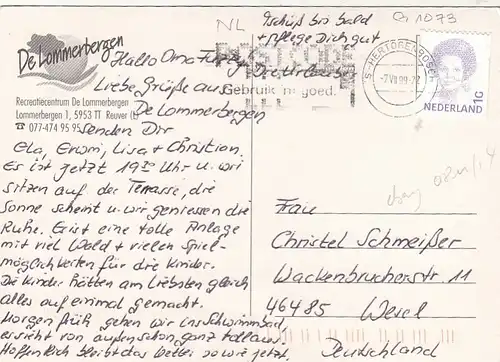 NL
Tschüß bis bald
+ pflege Dich gut
1073
De Lommerbergen
Hallo Oma
POSTCODE
Gebruik 'm goed.
'S-HERTOGENBOSCH
-7.VII.99
NEDERLAND
1G
Liebe Grüße aus
De Lommerbergen
Recreatiecentrum De Lommerbergen
Lommerbergen 1, 5953 TT Reuver (L)
☎ 077-474 95 95
senden Dir
Ela, Erwin, Lisa + Christian.
Es ist jetzt 19³⁰ Uhr u. wir
sitzen auf der Terrasse, die
Sonne scheint u. wir geniessen die
Ruhe. Es ist eine tolle Anlage
mit viel Wald + vielen Spiel-
möglichkeiten für die Kinder.
Die Kinder hätten am Liebsten gleich
alles auf einmal gemacht.
Morgen früh gehen wir ins Schwimmbad,
es sieht von außen schon ganz toll aus.
Hoffentlich bleibt das Wetter so wie jetzt.
Frau
Christel Schmeißer
Wackenbrucherstr. 11
46485 Wesel
Deutschland